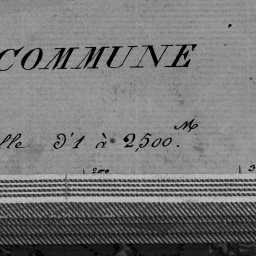 COMMUNE
lle d'1 à 2,500.M
200 3